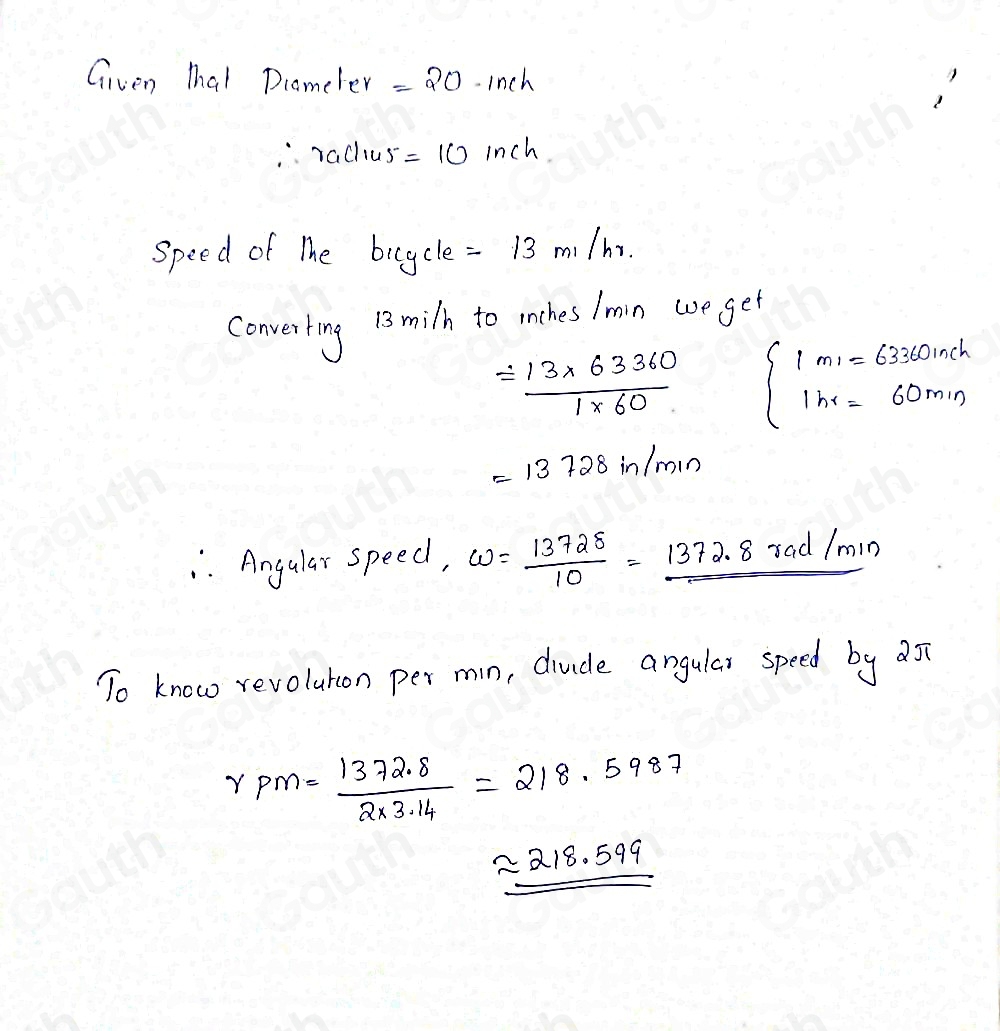 Given that Diameter = 20-inch
∴ radius = 10 inch.
Speed of the bicycle = 13 mi/hr.
Converting 13 mi/h to inches/min we get
= 13 x 63360 / 1 x 60 { 1 mi = 63360 inch
1 hr = 60 min
= 13728 in/min
∴ Angular speed, ω = 13728 / 10 = 1372.8 rad/min
To know revolution per min, divide angular speed by 2π
rpm = 1372.8 / 2x3.14 = 218.5987
≈ 218.599
Gauth